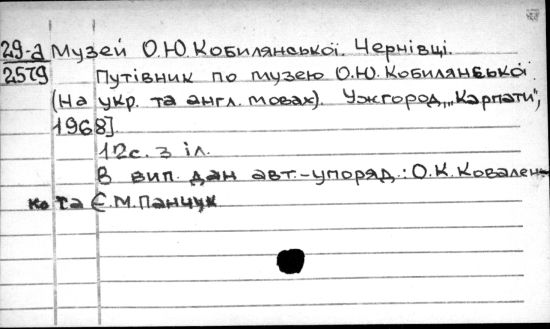 29-а Музей О.Ю.Кобилянської. Чернівці.
2579 Путівник по музею О.Ю.Кобилянської
(На укр. та англ. мовах). Ужгород, „Карпати",
1968]
12с. з іл.
В вип. дан авт.-упоряд.: О.К.Ковален-
ко та Є.М.Панчук